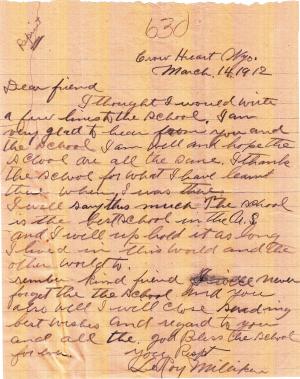 630
Crow Heart Wyo.
March, 14, 1912
Dear friend
I thought I would write
a few lines to the School. I am
very glad to hear from you and
the School I am will and hope the
School are all the same. I thank
the School for what I have learnt
there when I was there.
I will say this much The School
is the best School in the U.S
and I will up hold it as long
I lived in this world and the
other world to.
kind friend never
forget the the School and you
also will I will close sending
best wishes and regard to you
and all the. God Bless the School
for ever. Your Respt
LeRoy Milliken